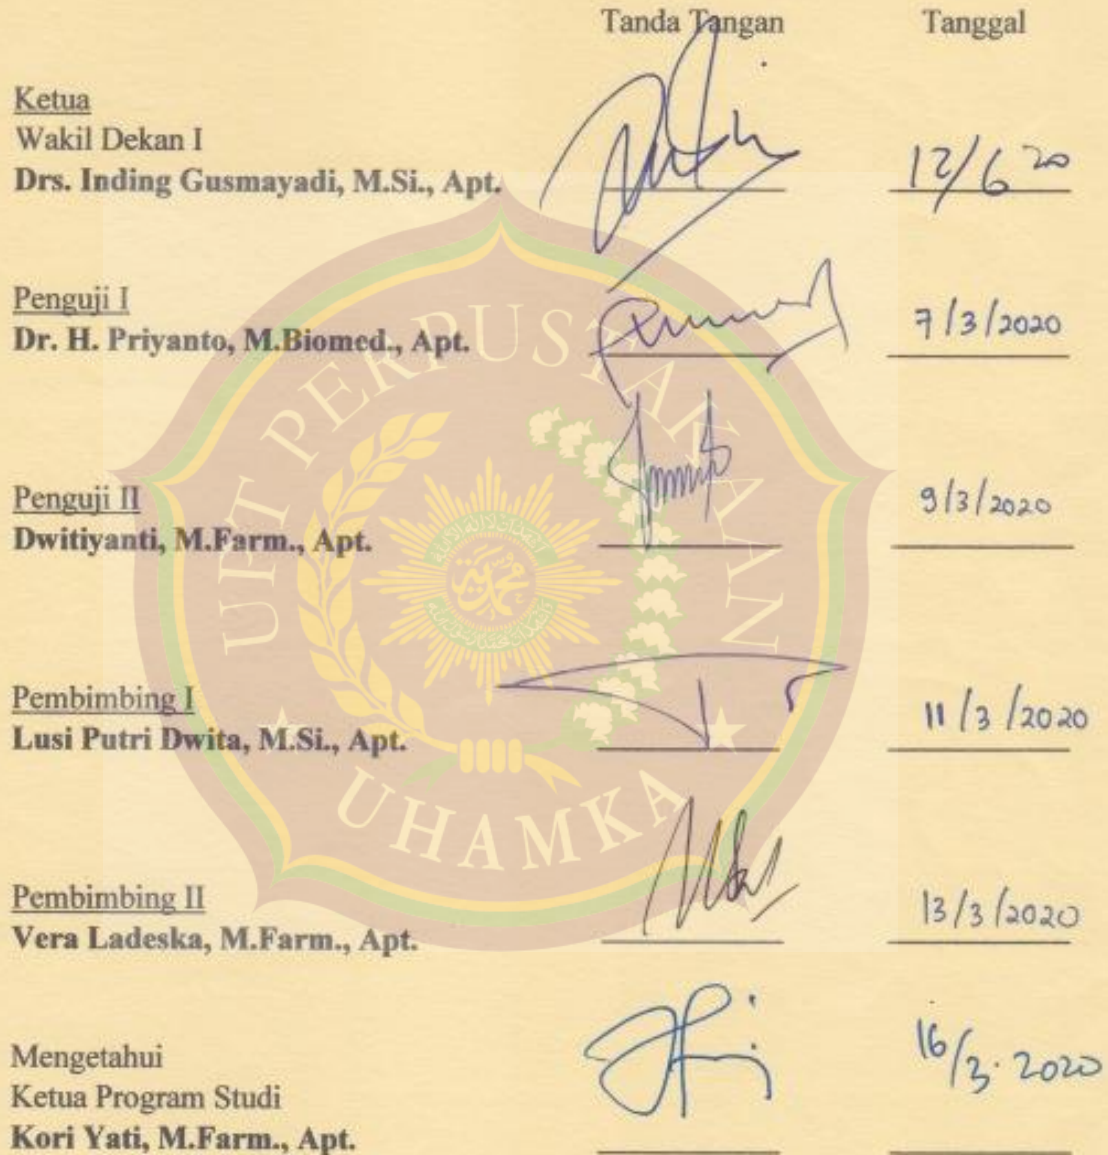 Tanda Tangan Tanggal
Ketua
Wakil Dekan I
Drs. Inding Gusmayadi, M.Si., Apt. 12/6 20
Penguji I
Dr. H. Priyanto, M.Biomed., Apt. 7/3/2020
Penguji II
Dwitiyanti, M.Farm., Apt. 9/3/2020
Pembimbing I
Lusi Putri Dwita, M.Si., Apt. 11/3/2020
Pembimbing II
Vera Ladeska, M.Farm., Apt. 13/3/2020
Mengetahui
Ketua Program Studi
Kori Yati, M.Farm., Apt. 16/3.2020
UPT PERPUSTAKAAN
UHAMKA
محمدية